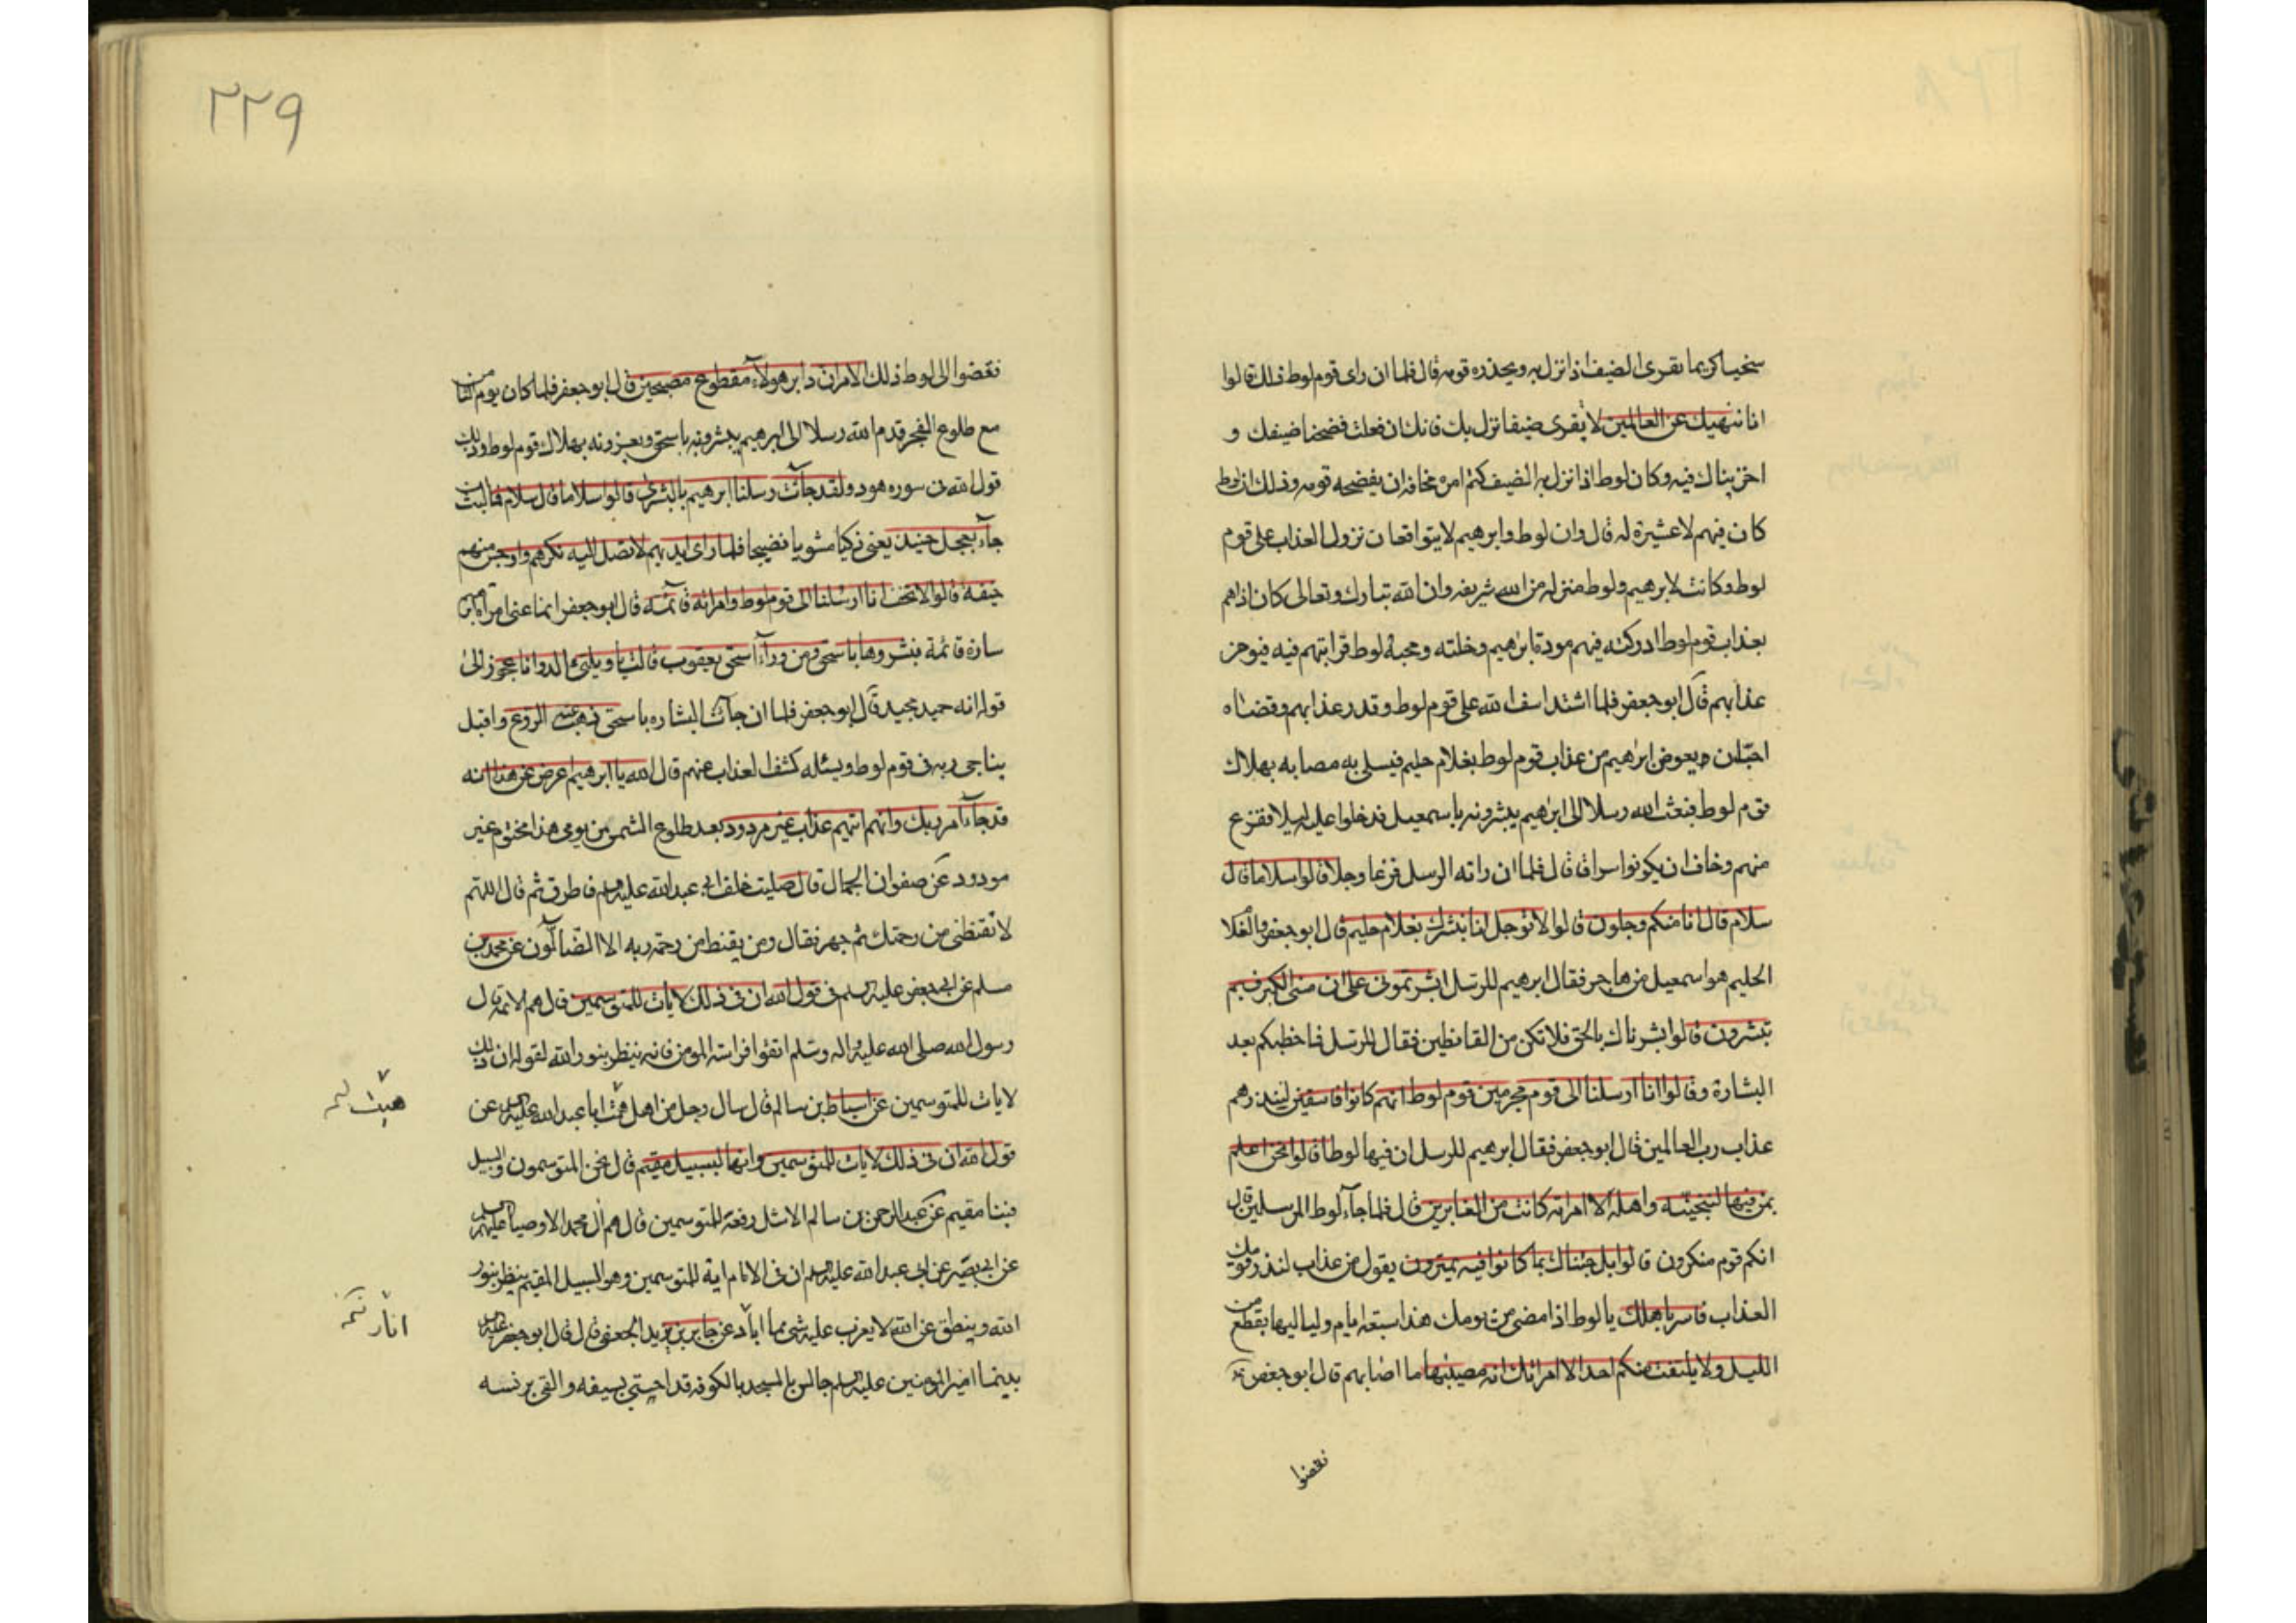 سخيا كريما يقرى الضيف اذا نزل به ويحذره قومه قال فلما ان راى قوم لوط ذلك قالوا
انا ننهيك عن العالمين لا تقرى ضيفا نزل بك فانك ان فعلت فضحنا ضيفك و
اخزيناك فيه وكان لوط اذا نزل به الضيف كتم امره مخافة ان يفضحه قومه وذلك ان لوط
كان فيهم لا عشيرة له قال وان لوط وابرهيم لا يتواقعان نزول العذاب على قوم
لوط وكانت لابرهيم ولوط منزلة من الله شريفه وان الله تبارك وتعالى كان اذا هم
بعذاب قوم لوط ادركته فيهم مودة ابرهيم وخلته ومحبة لوط قرابتهم فيه فيوخر
عذابهم قال ابو جعفر فلما اشتد اسف الله على قوم لوط وقدر عذابهم وقضاه
احب ان يعوض ابرهيم من عذاب قوم لوط بغلام حليم فيسلى به مصابه بهلاك
قوم لوط فبعث الله رسلا الى ابرهيم يبشرونه باسمعيل فدخلوا عليه ليلا ففزع
منهم وخاف ان يكونوا سراق قال فلما ان راته الرسل فزعا وجلا قالوا سلاما قال
سلام قال انا منكم وجلون قالوا لا توجل انا نبشرك بغلام حليم قال ابو جعفر والغلا
الحليم هو اسمعيل من هاجر فقال ابرهيم للرسل ابشرتمونى على ان مسنى الكبر فبم
تبشرون قالوا بشرناك بالحق فلا تكن من القانطين فقال للرسل فما خطبكم بعد
البشارة وقالوا انا ارسلنا الى قوم مجرمين قوم لوط انهم كانوا فاسقين لينذرهم
عذاب رب العالمين قال ابو جعفر فقال ابرهيم للرسل ان فيها لوطا قالوا نحن اعلم
بمن فيها لننجينه واهله الا امراته كانت من الغابرين قال فلما جاء لوط المرسلين قال
انكم قوم منكرون قالوا بل جئناك بما كانوا فيه يمترون يقول من عذاب لننذر قومك
العذاب فاسر باهلك يا لوط اذا مضى من يومك هذا سبعة ايام ولياليها بقطع من
الليل ولا يلتفت منكم احد الا امراتك انه مصيبها ما اصابهم قال ابو جعفر
فقضوا
٢٢٩
فقضوا الى لوط ذلك الامر ان دابر هولاء مقطوع مصبحين قال ابو جعفر فلما كان يوم الثامن
مع طلوع الفجر قدم الله رسلا الى ابرهيم يبشرونه باسحق ويعزونه بهلاك قوم لوط وذلك
قول الله فى سوره هود ولقد جاءت رسلنا ابرهيم بالبشرى قالوا سلاما قال سلام فما لبث ان
جاء بعجل حنيذ يعنى زكيا مشويا نضيجا فلما راى ايديهم لا تصل اليه نكرهم واوجس منهم
خيفة قالوا لا تخف انا ارسلنا الى قوم لوط وامراته قائمه قال ابو جعفر انما عنى امراة ابرهيم
سارة قائمة فبشروها باسحق ومن وراء اسحق يعقوب قالت يا ويلتى ءالد وانا عجوز الى
قوله انه حميد مجيد قال ابو جعفر فلما ان جاءت البشاره باسحق ذهب عنه الروع واقبل
يناجى ربه فى قوم لوط ويسئله كشف العذاب عنهم قال الله يا ابرهيم اعرض عن هذا انه
قد جاء امر ربك وانهم اتيهم عذاب غير مردود بعد طلوع الشمس من يومى هذا محتوم غير
مودود عن صفوان الجمال قال صليت خلف ابى عبد الله عليه السلم فاطرق ثم قال اللهم
لا تقنطنى من رحمتك ثم جهر فقال ومن يقنط من رحمة ربه الا الضالون عن محمد بن
مسلم عن ابى جعفر عليه السلم فى قول الله ان فى ذلك لايات للمتوسمين قال هم الائمة قال
رسول الله صلى الله عليه واله وسلم اتقوا فراسة المومن فانه ينظر بنور الله لقوله ان فى ذلك
لايات للمتوسمين عن اسباط بن سالم قال سال رجل من اهل هيت ابا عبد الله عليه السلم عن
قول الله ان فى ذلك لايات للمتوسمين وانها لبسبيل مقيم قال نحن المتوسمون والسبيل
فينا مقيم عن عبد الرحمن بن سالم الاشل رفعه للمتوسمين قال هم ال محمد الاوصيا عليهم السلم
عن ابى بصير عن ابى عبد الله عليه السلم ان فى الامام اية للمتوسمين وهو السبيل المقيم ينظر بنور
الله وينطق عن الله لا يعزب عليه شى مما اباد عن جابر بن يزيد الجعفى قال قال ابو جعفر عليه السلم
بينما امير المومنين عليه السلم جالس بالمسجد بالكوفه قد احتبى بسيفه والقى برنسه
هيت